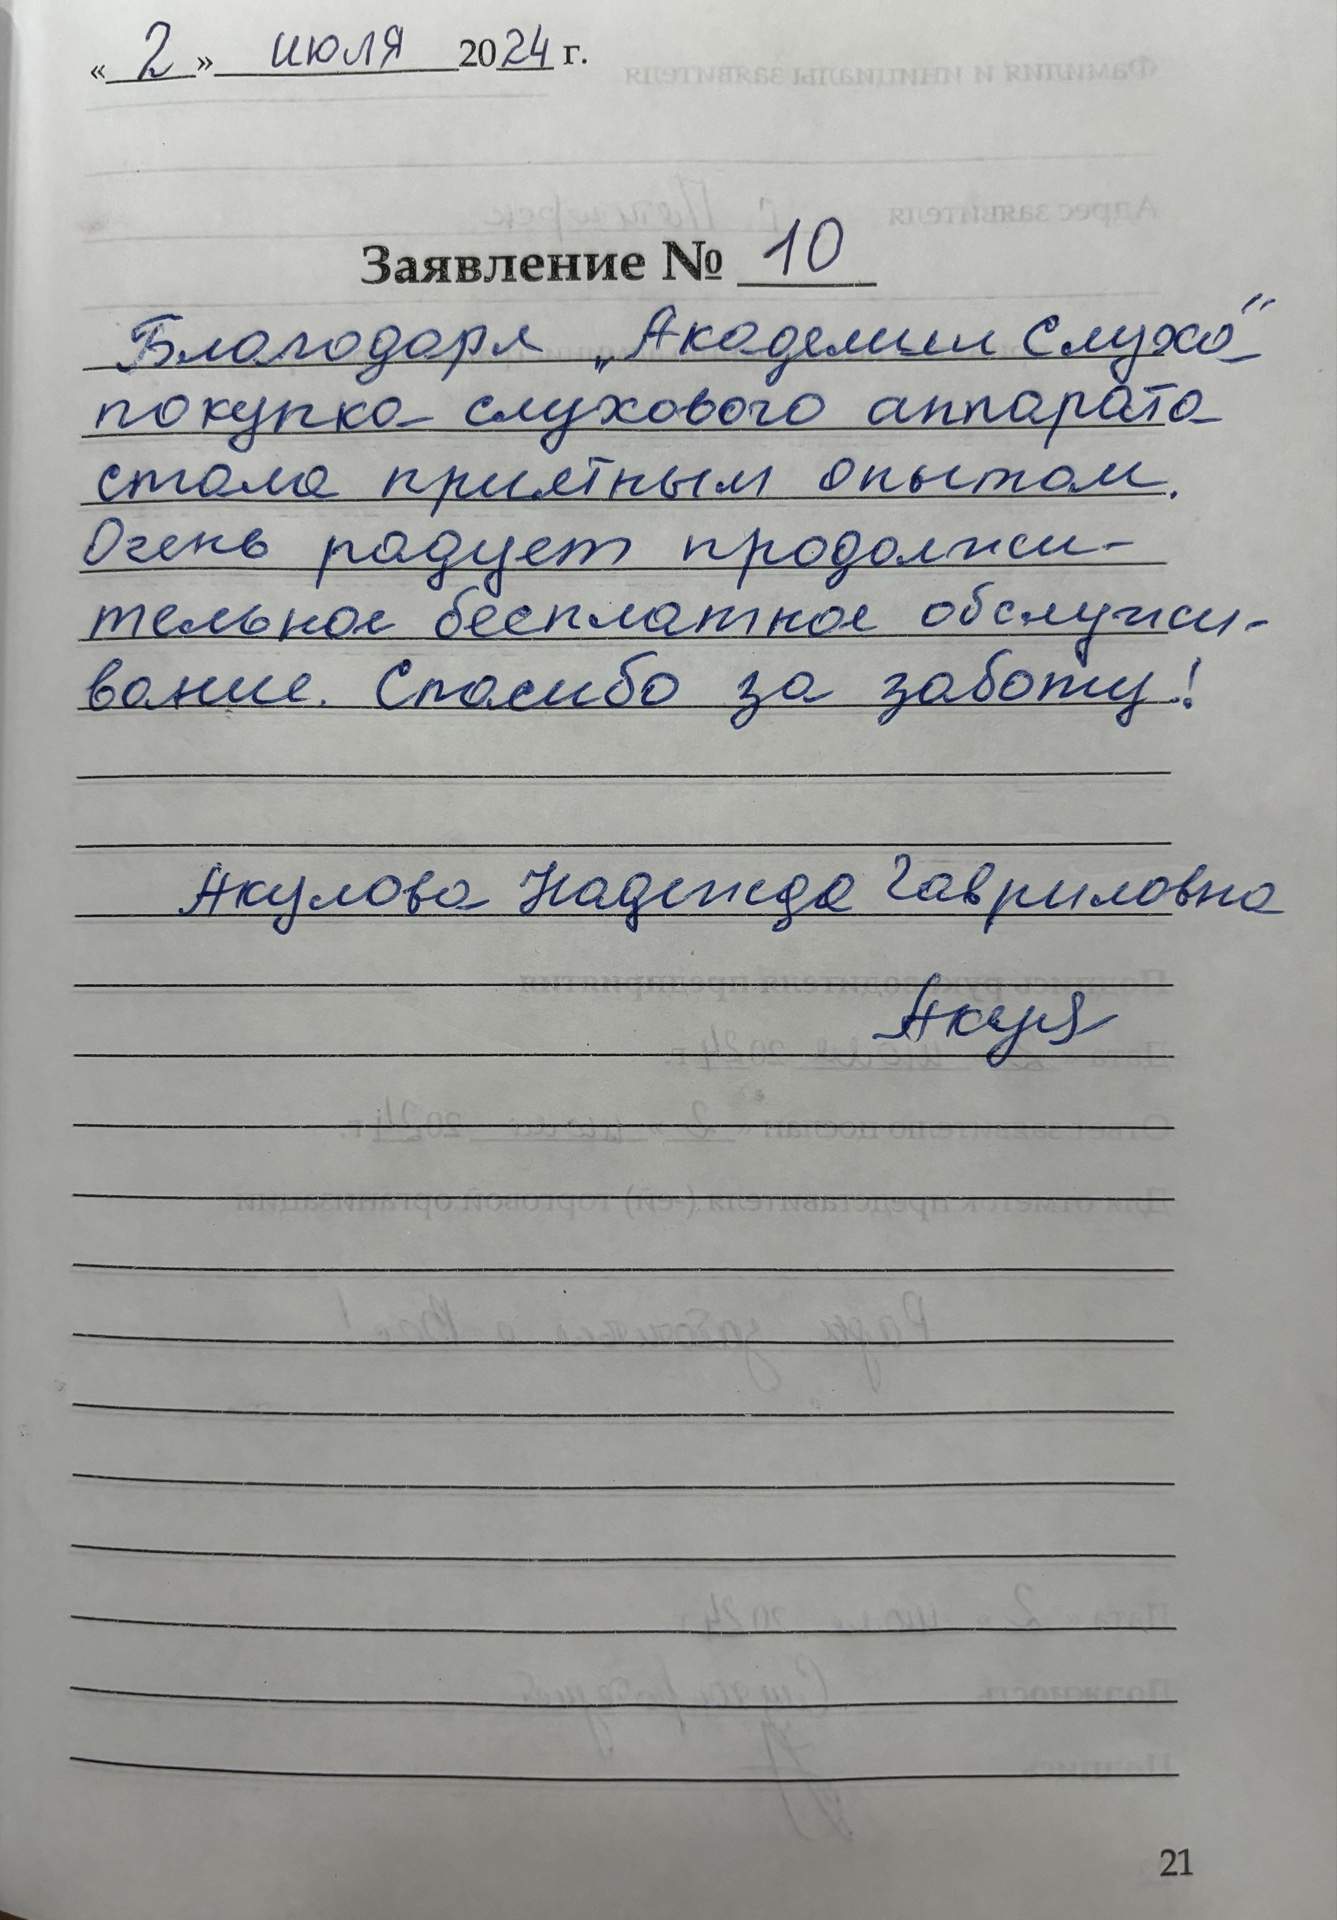 « 2 » июля 2024 г.
Заявление № 10
Благодаря „Академии Слуха"
покупка слухового аппарата
стала приятным опытом.
Очень радует продолжи-
тельное бесплатное обслужи-
вание. Спасибо за заботу!
Акулова Надежда Гавриловна
21